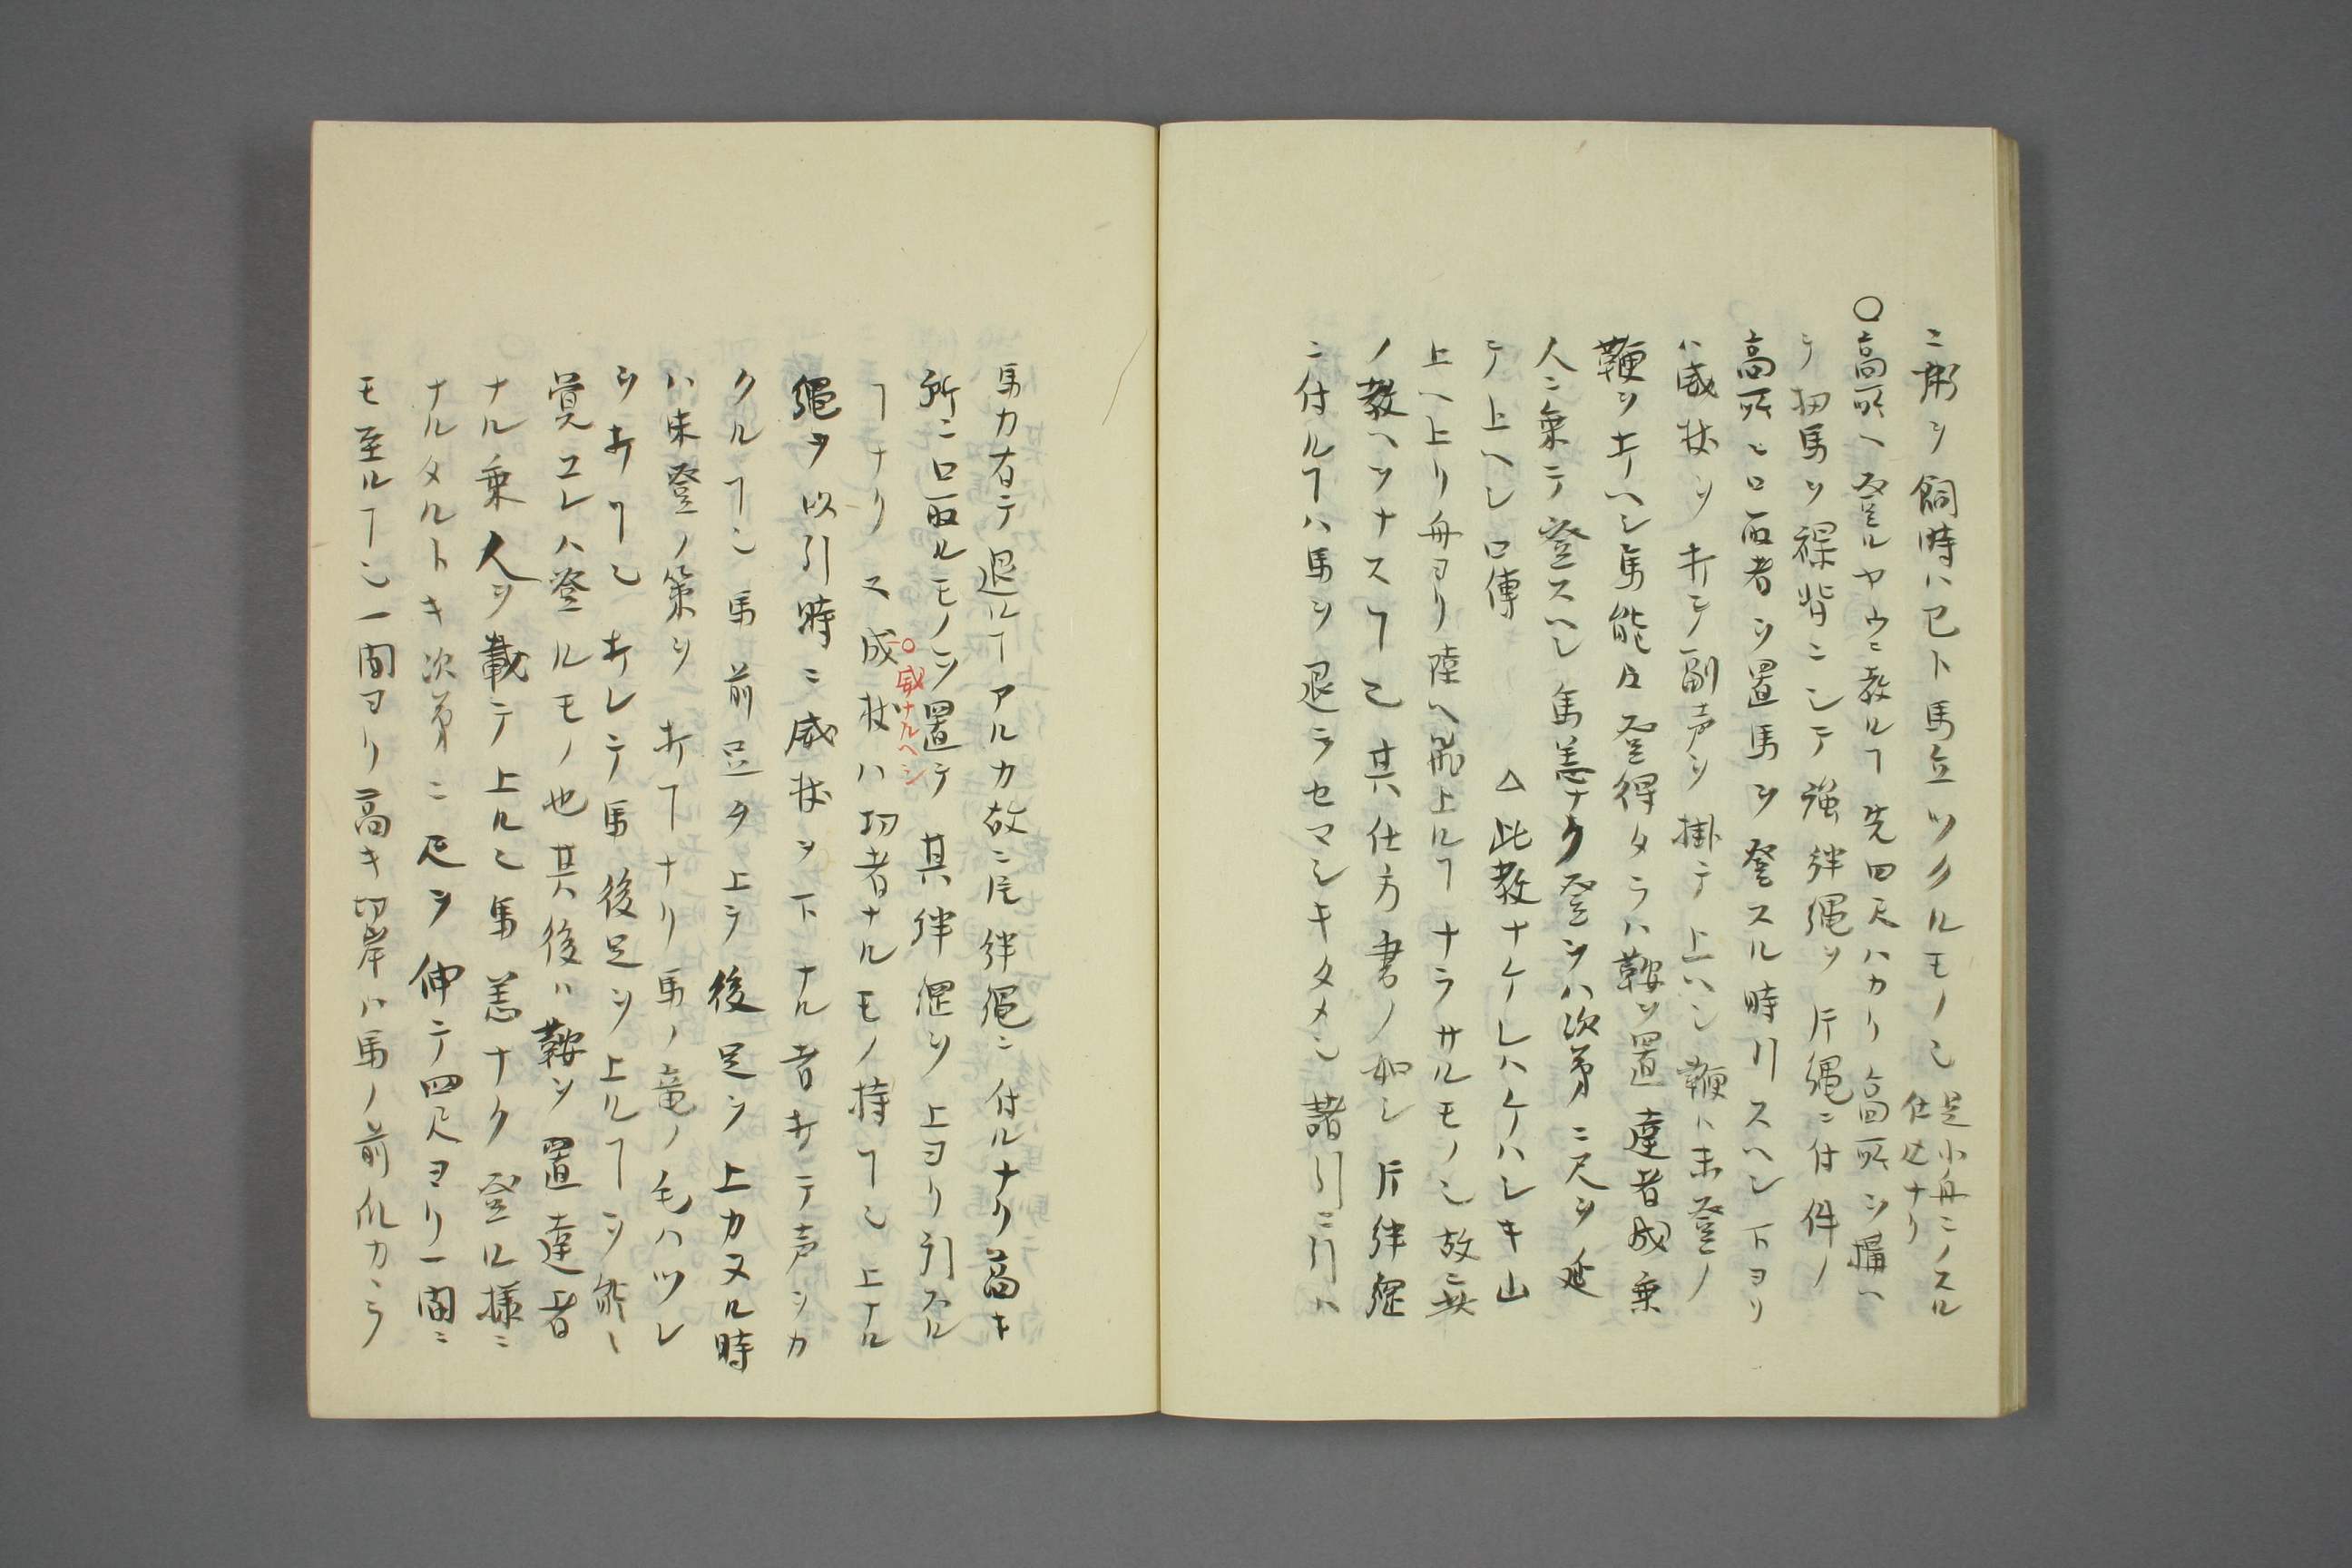 ニ粥ヲ飼時ハ己ト馬立ツクルモノ也 足小舟ニノスル
仕込ナリ
〇高所ヘ登ルヤウニ教ルヿ先四尺ハカリ高所ヲ搆ヘ
テ扨馬ヲ裸背ニシテ強絆縄ヲ片縄ニ付件ノ
高所ヒ口取者ヲ置馬ヲ登スル時引スヘシ下ヨリ
ハ威杖ヲキテ副声ヲ掛テ上ヘシ鞭ハ未登ノ
鞭ヲキヘシ馬能々登得タラハ鞍ヲ置達者成乗
人ニ乗テ登スヘシ馬恙ナク登ヲハ次第ニ尺ヲ延
テ上ヘシ口傳 △此教ナケレハケハシキ山
上ヘ上リ舟ヨリ陸ヘ飛上ルヿナラサルモノ也故ニ其
ノ教ヘヲナスヿ也其仕方書ノ如シ片絆縄
ニ付ルヿハ馬ヲ退ラセマシキタメ也諸引ニ引ハ
馬力有テ退ルヿアルカ故ニ片絆縄ニ付ルナリ高キ
所ニ口取ルモノヲ置テ其絆縄ヲ上ヨリ引スル
ヿナリ又成杖ハ切者ナルモノ持ヿ也上ナル
〇威ナルヘシ
縄ヲ以引時ニ威杖ヲ下ナル者キテ声ヲカ
クルヿ也馬前足タ上テ後足ヲ上カヌル時
ハ未登ノ策ヲキヿナリ馬ノ竜ノ毛ハツレ
ヲキヿ也キレテ馬後足ヲ上ルヿヲ能々
覚ユレハ登ルモノ也其後ハ鞍ヲ置達者
ナル乗人ヲ載テ上ル也馬恙ナク登ル様ニ
ナルタルトキ次第ニ尺ヲ伸テ四尺ヨリ一間ニ
モ至ルヿ也一間ヨリ高キ切岸ハ馬ノ前爪カヽラ